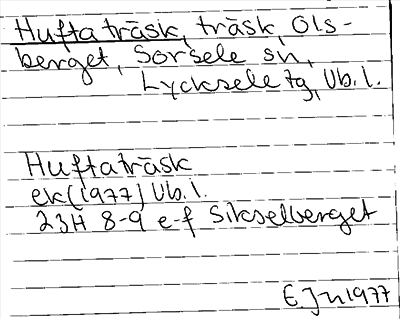 Huftaträsk, träsk, Ols-
berget, Sorsele sn,
Lycksele tg, Vb. l.
Huftaträsk
ek (1977) Vb. l.
23H 8-9 e-f Sikselberget
EJn 1977